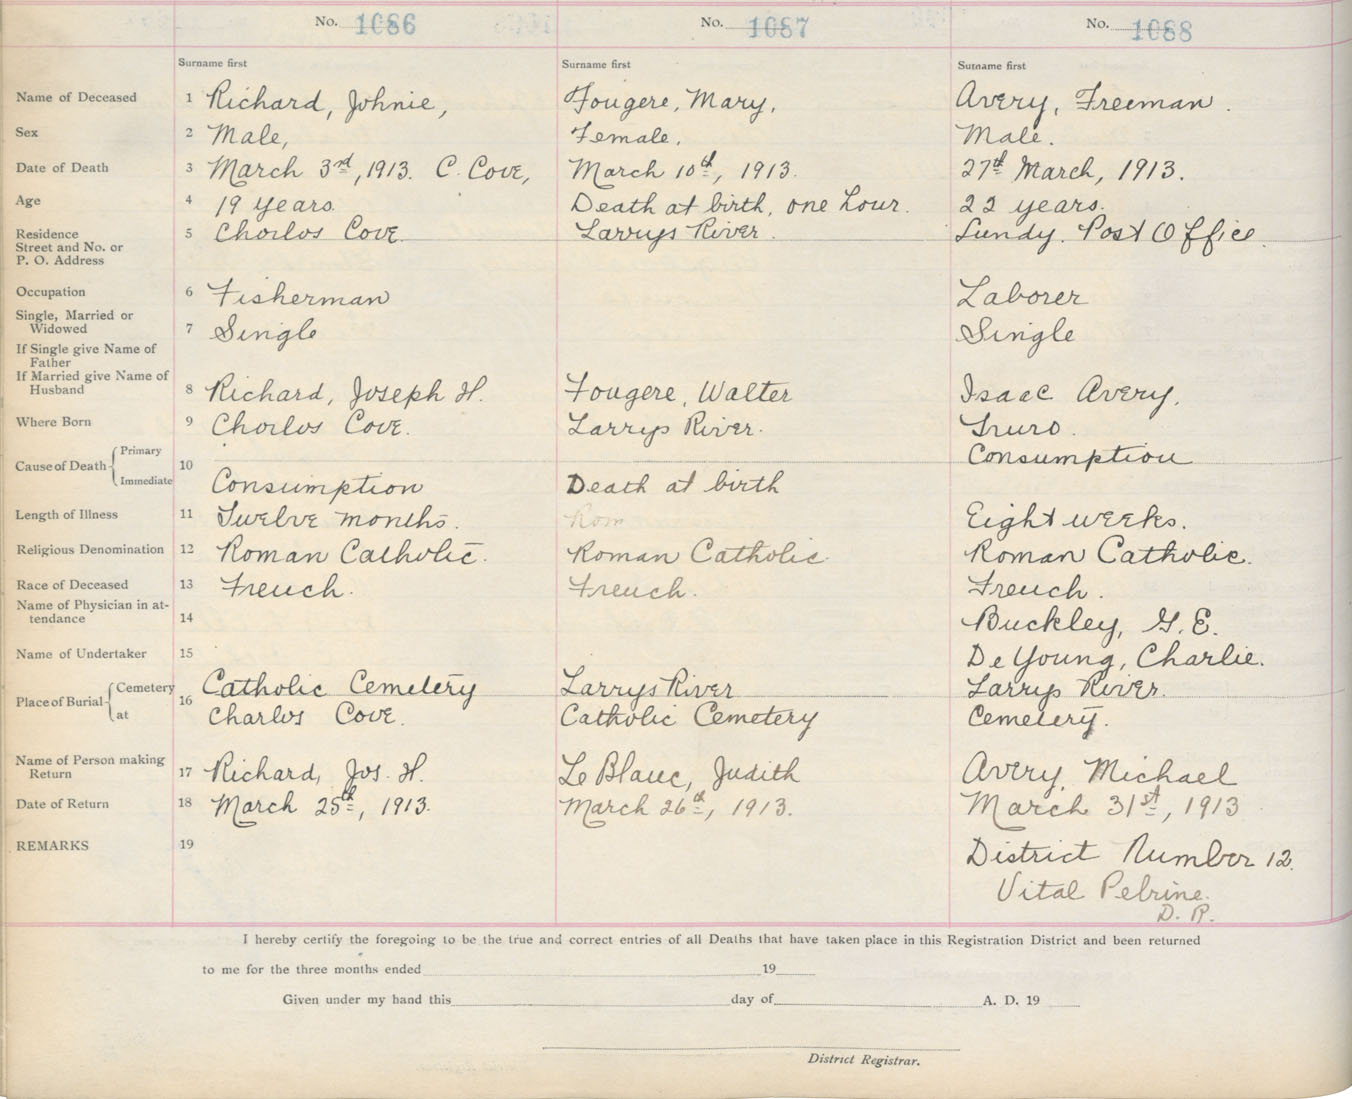 No. 1086 No. 1087 No. 1088
Surname first Surname first Surname first
Name of Deceased 1 Richard, Johnie, Fougere, Mary, Avery, Freeman.
Sex 2 Male, Female. Male.
Date of Death 3 March 3rd, 1913. C. Cove, March 10th, 1913. 27th March, 1913.
Age 4 19 years. Death at birth, one hour. 22 years.
Residence 5 Charlos Cove. Larrys River. Lundy. Post Office.
Street and No. or
P. O. Address
Occupation 6 Fisherman Laborer
Single, Married or
Widowed 7 Single Single
If Single give Name of
Father
If Married give Name of
Husband 8 Richard, Joseph H. Fougere, Walter Isaac Avery,
Where Born 9 Charlos Cove. Larrys River. Truro.
Cause of Death Primary 10 Consumption
Immediate Consumption Death at birth
Length of Illness 11 Twelve months. Rom Eight weeks.
Religious Denomination 12 Roman Catholic. Roman Catholic. Roman Catholic.
Race of Deceased 13 French. French. French.
Name of Physician in at-
tendance 14 Buckley, G. E.
Name of Undertaker 15 De Young, Charlie.
Place of Burial Cemetery 16 Catholic Cemetery Larrys River Larrys River.
at Charlos Cove. Catholic Cemetery Cemetery.
Name of Person making
Return 17 Richard, Jos. H. Le Blanc, Judith Avery, Michael
Date of Return 18 March 25th, 1913. March 26th, 1913. March 31st, 1913
REMARKS 19 District Number 12.
Vital Pelrine.
D. R.
I hereby certify the foregoing to be the true and correct entries of all Deaths that have taken place in this Registration District and been returned
to me for the three months ended 19
Given under my hand this day of A. D. 19
District Registrar.